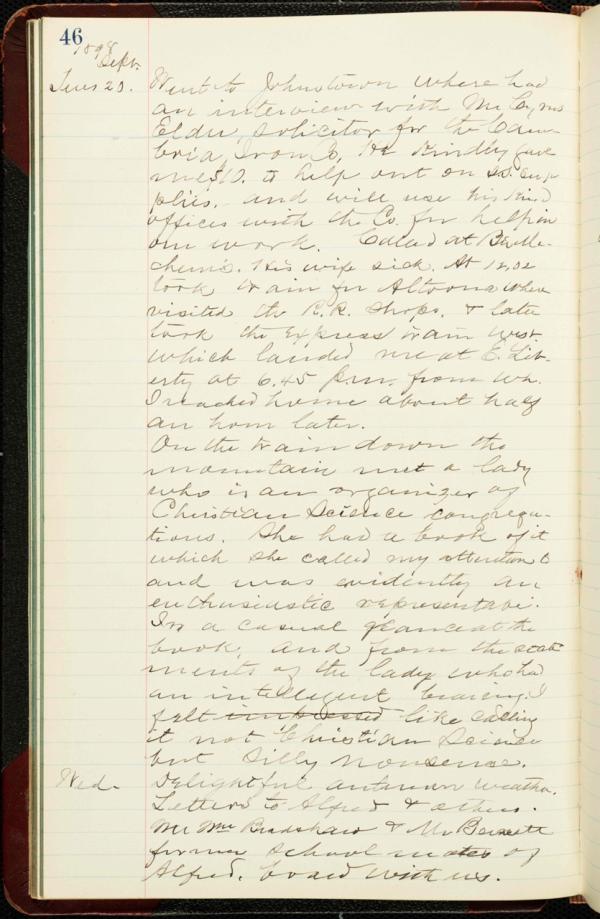 46
1898
Sept.
Tues 20. Went to Johnstown where had
an interview with Mr Cyrus
Elder, solicitor for the Cam-
bria Iron Co, He kindly gave
me $10. to help out on S.S. sup
plies. and will use his kind
offices with the Co. for help in
our work. Called at
His wife sick. At 12,02
took train for Altoona where
visited the R.R. Shops. & later
took the Express train west.
which landed me at E. Lib-
erty at 6.45 p.m. from wh.
I reached home about half
an hour later.
On the train down the
mountain met a lady
who is an organizer of
Christian Science congrega-
tions. She had a book of it
which she called my attention to
and was evidently an
enthusiastic representative.
In a casual glance at the
book, and from the state
ments of the lady who had
an intelligent bearing. I
felt impressed like calling
it not Christian Science
but Silly nonsense.
Wed. Delightful autumn weather.
Letters to Alfred & others.
Mr Wm Bradshaw & Mr
former school mates of
Alfred. board with us.